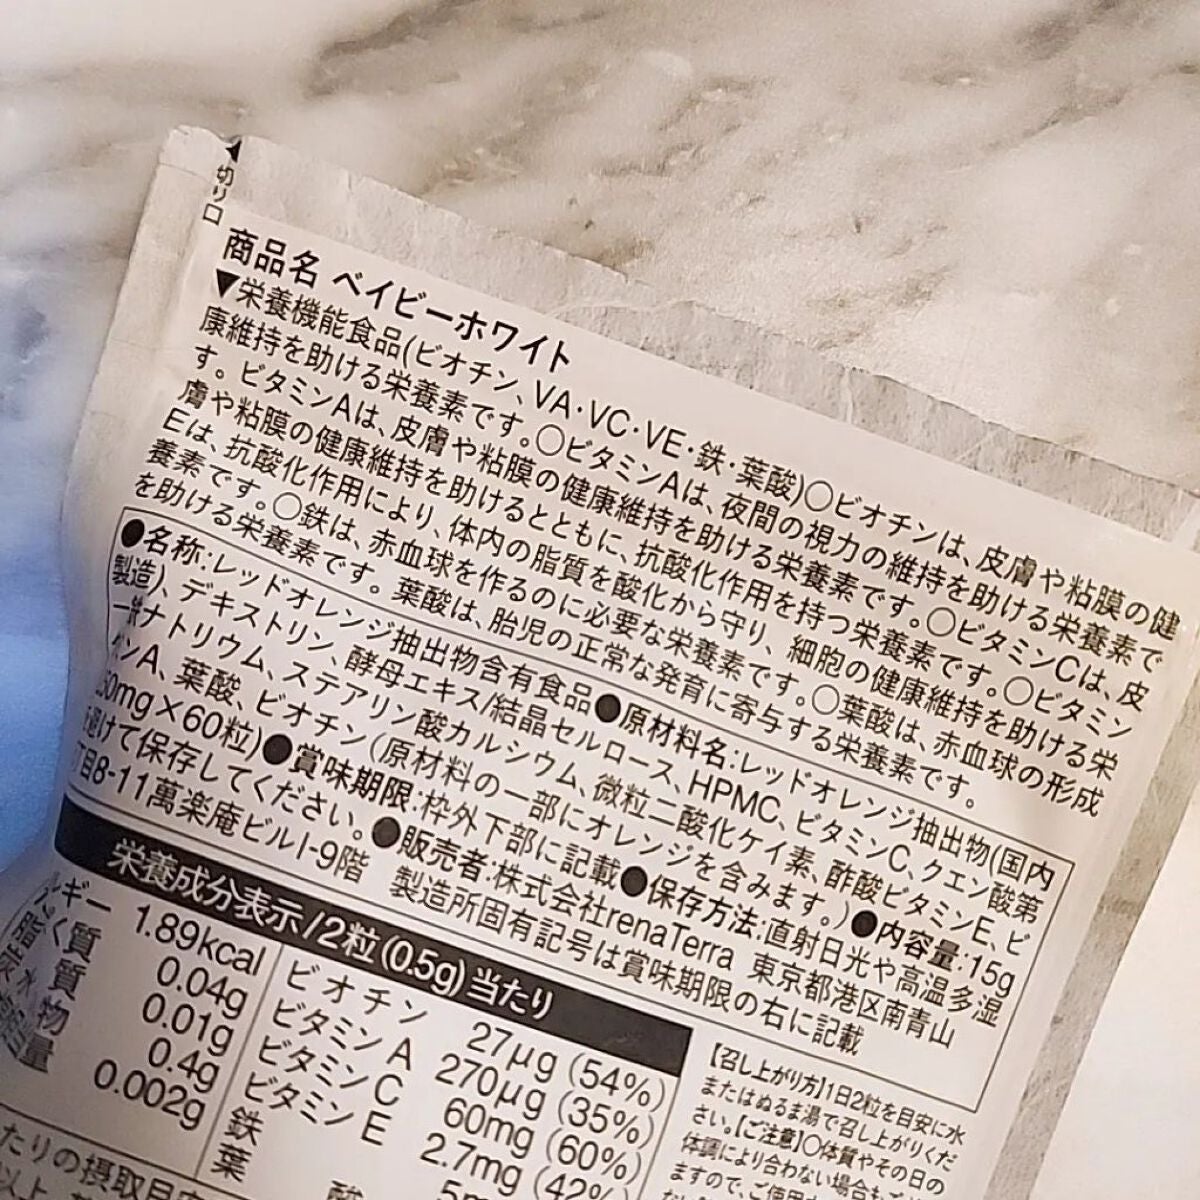 切り口
商品名 ベイビーホワイト
▼栄養機能食品(ビオチン、VA・VC・VE・鉄・葉酸)○ビオチンは、皮膚や粘膜の健
康維持を助ける栄養素です。○ビタミンAは、夜間の視力の維持を助ける栄養素で
す。ビタミンAは、皮膚や粘膜の健康維持を助ける栄養素です。○ビタミンCは、皮
膚や粘膜の健康維持を助けるとともに、抗酸化作用を持つ栄養素です。○ビタミン
Eは、抗酸化作用により、体内の脂質を酸化から守り、細胞の健康維持を助ける栄
養素です。○鉄は、赤血球を作るのに必要な栄養素です。○葉酸は、赤血球の形成
を助ける栄養素です。葉酸は、胎児の正常な発育に寄与する栄養素です。
●名称:レッドオレンジ抽出物含有食品●原材料名:レッドオレンジ抽出物(国内
製造)、デキストリン、酵母エキス/結晶セルロース、HPMC、ビタミンC、クエン酸第
一鉄ナトリウム、ステアリン酸カルシウム、微粒二酸化ケイ素、酢酸ビタミンE、ビ
ンA、葉酸、ビオチン(原材料の一部にオレンジを含みます。)●内容量:15g
50mg×60粒)●賞味期限:枠外下部に記載●保存方法:直射日光や高温多湿
避けて保存してください。●販売者:株式会社renaTerra 東京都港区南青山
丁目8-11萬楽庵ビルI-9階 製造所固有記号は賞味期限の右に記載
栄養成分表示/2粒(0.5g)当たり
ギー 1.89kcal
く質 0.04g
質 0.01g
水物 0.4g
量 0.002g
ビオチン 27μg (54%)
ビタミンA 270μg (35%)
ビタミンC 60mg (60%)
ビタミンE 2.7mg (42%)
鉄
葉酸
【召し上がり方】1日2粒を目安に水
またはぬるま湯で召し上がりくだ
さい。【ご注意】○体質やその日の
体調により合わない場合も
ますので、ご使用
たりの摂取目安
以上